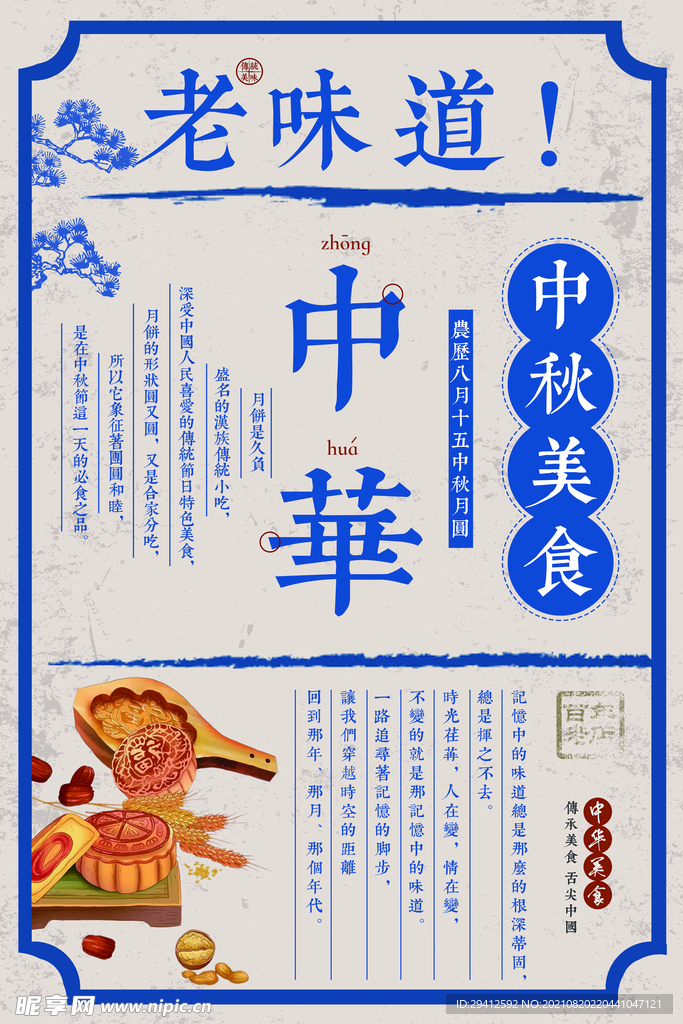 老味道！
傳統美味
zhōng
中
huá
華
中秋美食
農歷八月十五中秋月圓
月餅是久負
盛名的漢族傳統小吃，
深受中國人民喜愛的傳統節日特色美食，
月餅的形狀圓又圓，又是合家分吃，
所以它象征著團圓和睦，
是在中秋節這一天的必食之品。
百年老店
中华美食
傳承美食 舌尖中國
記憶中的味道總是那麼的根深蒂固，
總是揮之不去。
時光荏苒，人在變，情在變，
不變的就是那記憶中的味道。
一路追尋著記憶的脚步，
讓我們穿越時空的距離
回到那年、那月、那個年代。
昵享网 www.nipic.cn
ID:29412592 NO:20210820220441047121